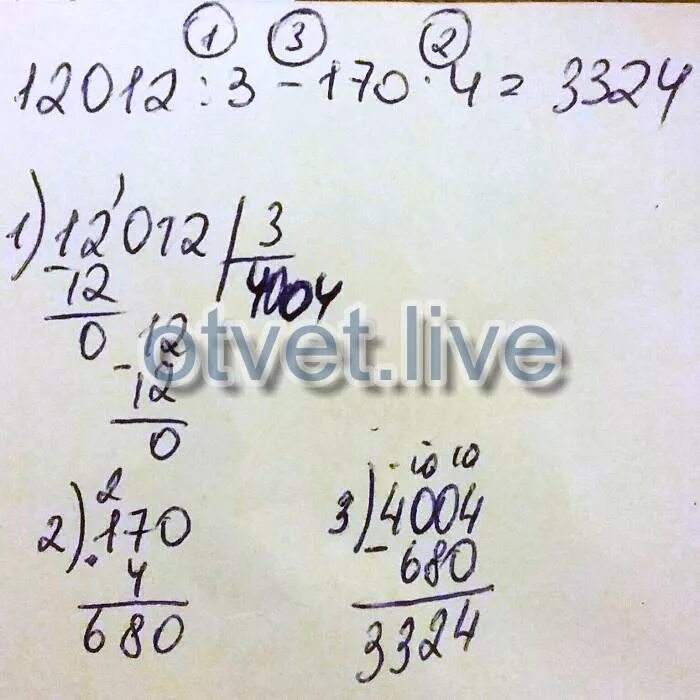 1 3 2
12012 : 3 - 170 · 4 = 3324
1) 12012 | 3
- 12 4004
0 12
- 12
0
otvet.live
2
2) 170
· 4
680
10 10
3) 4004
- 680
3324